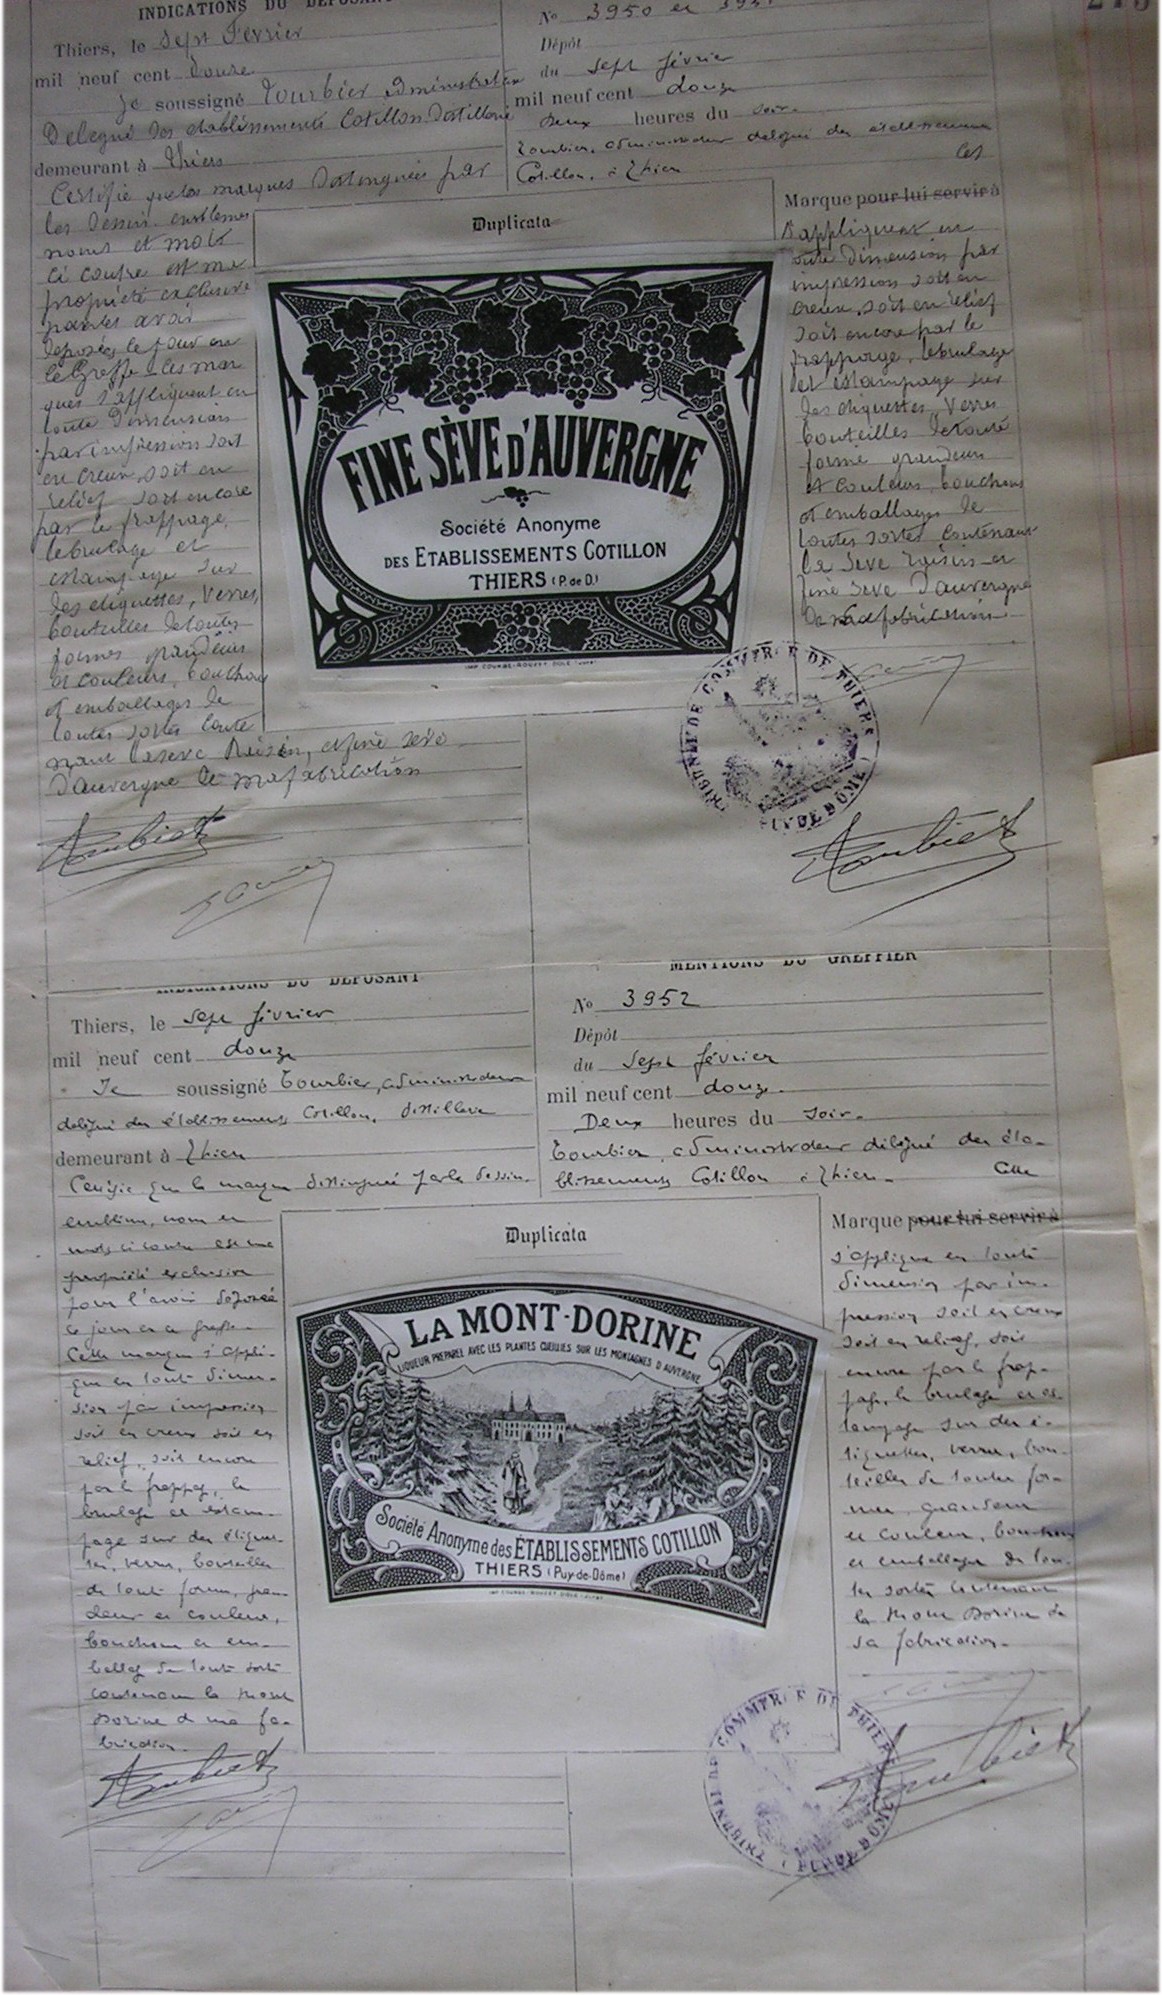 INDICATIONS DU DEPOSANT
Thiers, le sept Février
mil neuf cent Douze
Je soussigné Tourbier, administrateur
Délégué des établissements Cotillon Distillerie
demeurant à Thiers
Certifie que les marques Distinguées par
les Dessin emblemes
noms et mots
ci contre est ma
propriété exclusive
pour les avoir
déposées le jour au
le Greffe les mar
ques s'appliquent en
toute Dimension
par impression soit
en creux, soit en
relief soit encore
par le frappage,
le brulage et
estampage sur
des etiquettes, Verres,
bouteilles de toutes
formes grandeurs
et couleurs, bouchons
et emballages de
toutes sortes conte
nant la seve Raisin, et finé seve
d'auvergne de ma fabrication
Tourbier
No 3950 et 3951
Dépôt
du sept février
mil neuf cent douze
Deux heures du soir.
Tourbier, administrateur délégué des établissements
Cotillon, à Thiers Les
Duplicata
FINE SÈVE D'AUVERGNE
Société Anonyme
DES ETABLISSEMENTS COTILLON
THIERS (P. de D.)
IMP. COURBE-ROUZET DOLE (JURA)
Marque pour lui servir à
s'appliquent en
toute Dimension par
impression soit en
creux, soit en relief
soit encore par le
frappage, le brulage
et estampage sur
des etiquettes, Verres
bouteilles de toute
forme grandeurs
et couleurs, bouchons
et emballages de
toutes sortes contenant
la Seve Raisin et
finé seve d'auvergne
de sa fabrication
TRIBUNAL DE COMMERCE DE THIERS
(PUY DE DÔME)
Tourbier
INDICATIONS DU DEPOSANT
Thiers, le sept février
mil neuf cent douze
Je soussigné Tourbier, administrateur
délégué des établissements Cotillon, distillerie
demeurant à Thiers
Certifie que la marque distinguée par le dessin,
emblème, nom et
mots ci contre est ma
propriété exclusive
pour l'avoir déposée
ce jour au greffe.
Cette marque s'appli-
que en toute dimen-
sion par impression
soit en creux soit en
relief, soit encore
par le frappage, le
brulage et estam-
page sur des étiquet-
tes, verres, bouteilles
de toute forme, gran-
deur et couleur,
bouchons et em-
ballage de toute sorte
contenant la Mont
Dorine de ma fa-
brication.
Tourbier
MENTIONS DU GREFFIER
No 3952
Dépôt
du sept février
mil neuf cent douze.
Deux heures du soir.
Tourbier, administrateur délégué des éta-
blissements Cotillon à Thiers. Cette
Duplicata
LA MONT-DORINE
LIQUEUR PREPAREE AVEC LES PLANTES CUEILLIES SUR LES MONTAGNES D'AUVERGNE
Société Anonyme des ÉTABLISSEMENTS COTILLON
THIERS (Puy-de-Dôme)
IMP. COURBE-ROUZET DOLE (JURA)
Marque pour lui servir à
s'applique en toute
dimension par im-
pression soit en creux
soit en relief, soit
encore par le frap-
page, le brulage et es-
tampage sur des é-
tiquettes, verres, bou-
teilles de toutes for-
mes, grandeur
et couleur, bouchons
et emballage de tou-
tes sortes contenant
la Mont Dorine de
sa fabrication.
TRIBUNAL DE COMMERCE DE THIERS
(PUY DE DÔME)
Tourbier